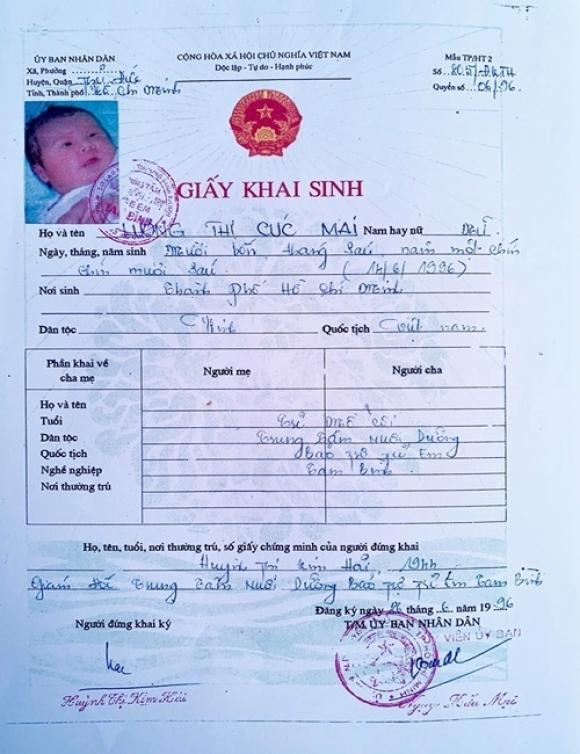 ỦY BAN NHÂN DÂN
CỘNG HÒA XÃ HỘI CHỦ NGHĨA VIỆT NAM
Mẫu TP/HT 2
Xã, Phường
Độc lập - Tự do - Hạnh phúc
Số
Huyện, Quận Thủ Đức
Quyển số 06/96
Tỉnh, Thành phố Hồ Chí Minh
GIẤY KHAI SINH
Họ và tên THỊ CÚC MAI Nam hay nữ Nữ
Ngày, tháng, năm sinh Mười bốn tháng sáu năm một chín
chín mươi sáu. (14/6/1996)
Nơi sinh Thành Phố Hồ Chí Minh
Dân tộc Kinh Quốc tịch Việt nam.
Phần khai về cha mẹ
Người mẹ
Người cha
Họ và tên
Tuổi
Trẻ mồ côi
Dân tộc
Trung tâm Nuôi Dưỡng
Quốc tịch
Bảo trợ trẻ Em
Nghề nghiệp
Tam Bình.
Nơi thường trú
Họ, tên, tuổi, nơi thường trú, số giấy chứng minh của người đứng khai
Huỳnh Thị Kim Hải, 1944
Giám đốc Trung tâm Nuôi Dưỡng Bảo trợ trẻ Em Tam Bình
Đăng ký ngày 26 tháng 6 năm 1996
Người đứng khai ký
T/M ỦY BAN NHÂN DÂN
VIÊN ỦY BAN
Huỳnh Thị Kim Hải